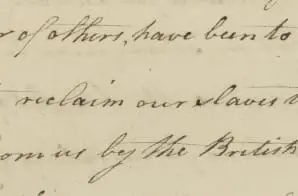 r of others, have been to
reclaim our slaves
om us by the British